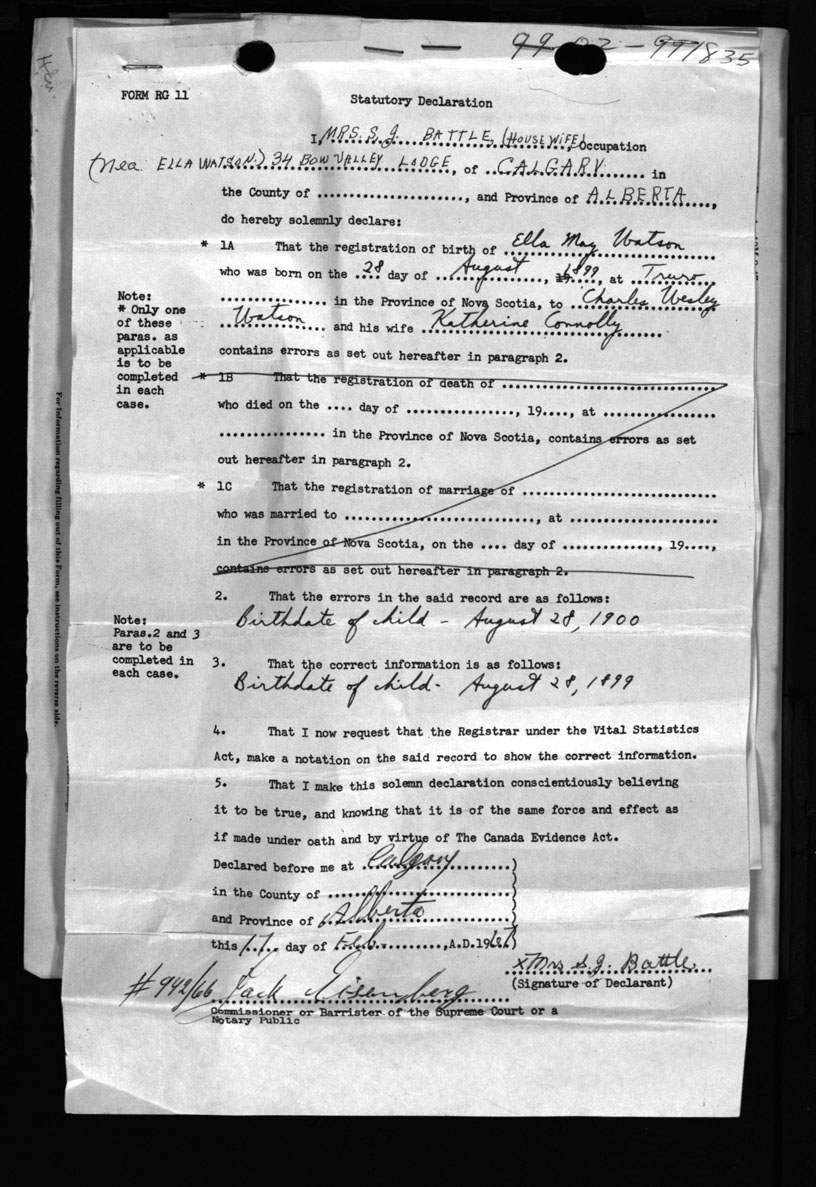 99 02 - 991835
FORM RG 11
Statutory Declaration
I, MRS. S. J. BATTLE, (HOUSEWIFE) Occupation
(nea ELLA WATSON.) 34 BOW VALLEY LODGE, of CALGARY in
the County of ......................, and Province of ALBERTA,
do hereby solemnly declare:
* 1A That the registration of birth of Ella May Watson
who was born on the 28 day of August, 19 1899, at Truro
................ in the Province of Nova Scotia, to Charles Wesley
Watson and his wife Katherine Connolly
contains errors as set out hereafter in paragraph 2.
Note:
* Only one
of these
paras. as
applicable
is to be
completed
in each
case.
* 1B That the registration of death of ................................
who died on the .... day of ................, 19...., at .................
................ in the Province of Nova Scotia, contains errors as set
out hereafter in paragraph 2.
* 1C That the registration of marriage of .............................
who was married to ............................., at ......................
in the Province of Nova Scotia, on the .... day of .............., 19....,
contains errors as set out hereafter in paragraph 2.
2. That the errors in the said record are as follows:
Birthdate of child - August 28, 1900
Note:
Paras.2 and 3
are to be
completed in
each case.
3. That the correct information is as follows:
Birthdate of child - August 28, 1899
4. That I now request that the Registrar under the Vital Statistics
Act, make a notation on the said record to show the correct information.
5. That I make this solemn declaration conscientiously believing
it to be true, and knowing that it is of the same force and effect as
if made under oath and by virtue of The Canada Evidence Act.
Declared before me at Calgary )
in the County of ........................... )
and Province of Alberta )
this 17 day of Feb., A.D.1967 )
x Mrs S. J. Battle
(Signature of Declarant)
#942/66 Jack Eisenberg
Commissioner or Barrister of the Supreme Court or a
Notary Public
For information regarding filling out of this Form, see instructions on the reverse side.